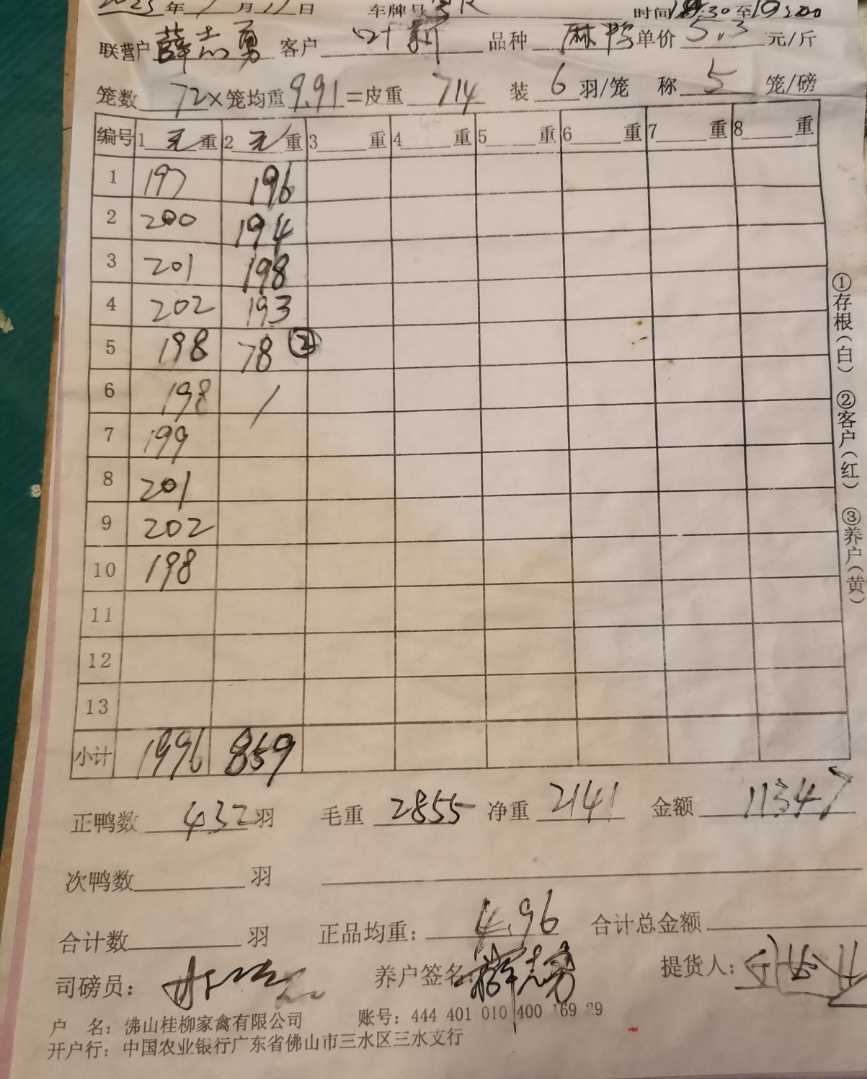 2025年 月11日 车牌号 时间18:30至19:00
联营户 薛志勇 客户 叶新 品种 麻鸭 单价 5.3 元/斤
笼数 72×笼均重9.91=皮重 714 装 6 羽/笼 称 5 笼/磅
编号 1 毛 重 2 毛 重 3 重 4 重 5 重 6 重 7 重 8 重
1 197 196
2 200 194
3 201 198
4 202 193
5 198 78 ②
6 198 /
7 199
8 201
9 202
10 198
11
12
13
小计 1996 859
正鸭数 432 羽 毛重 2855 净重 2141 金额 11347
次鸭数 羽
合计数 羽 正品均重: 4.96 合计总金额
司磅员: 养户签名: 薛志勇 提货人:
户 名: 佛山桂柳家禽有限公司 账号: 444 401 010 400 169 29
开户行: 中国农业银行广东省佛山市三水区三水支行
①存根(白) ②客户(红) ③养户(黄)